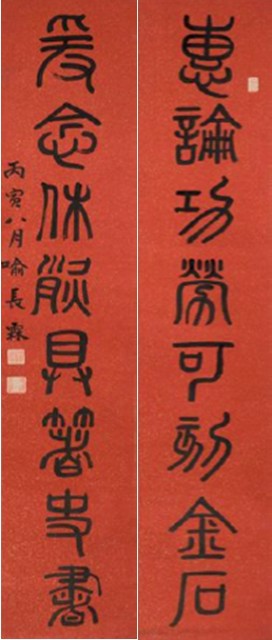 惠論功勞可刻金石
爰念休烈具著史書
丙寅八月喻長霖